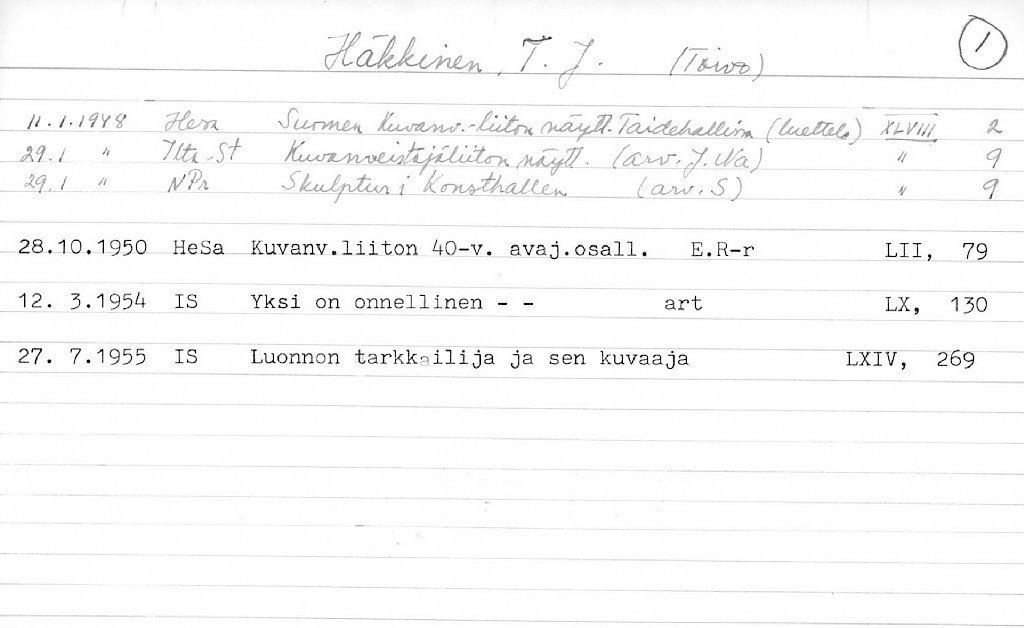 Häkkinen, T. J. (Toivo) 1
11.1.1948 Hesa Suomen Kuvanv.-liiton näytt. Taidehallissa (luettelo) XLVIII 2
29.1 " Ilta-St Kuvanveistäjäliiton näytt. (arv. J. Va) " 9
29.1 " NPr Skulptur i Konsthallen (arv. S) " 9
28.10.1950 HeSa Kuvanv.liiton 40-v. avaj.osall. E.R-r LII, 79
12. 3.1954 IS Yksi on onnellinen - - art LX, 130
27. 7.1955 IS Luonnon tarkkailija ja sen kuvaaja LXIV, 269